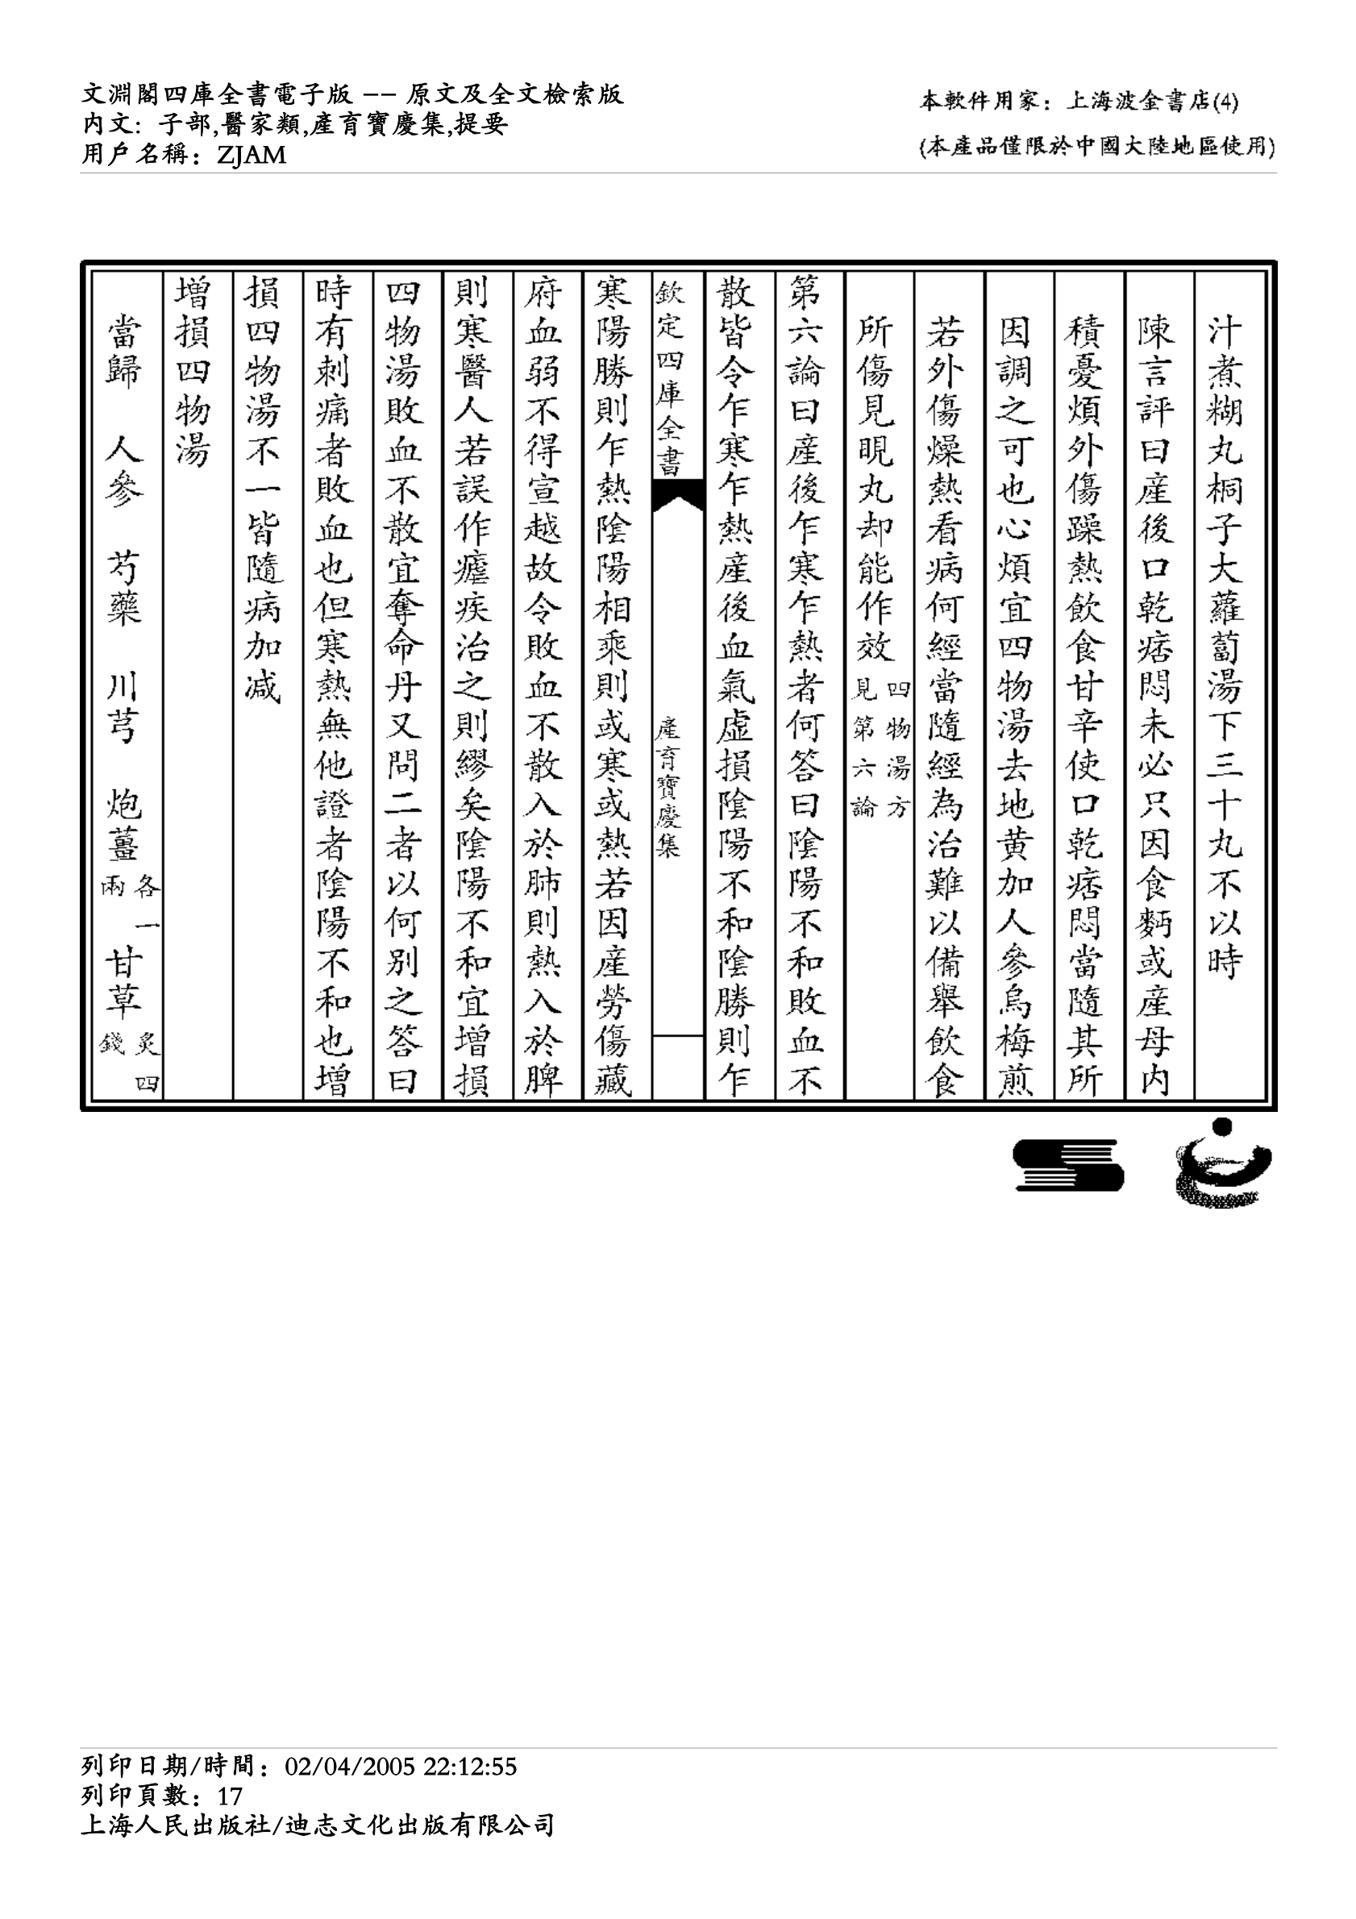 文淵閣四庫全書電子版 -- 原文及全文檢索版
内文: 子部,醫家類,產育寶慶集,提要
用戶名稱: ZJAM
本軟件用家: 上海波金書店(4)
(本產品僅限於中國大陸地區使用)
汁煮糊丸桐子大蘿蔔湯下三十丸不以時
陳言評曰產後口乾痞悶未必只因食麪或產母内
積憂煩外傷躁熱飲食甘辛使口乾痞悶當隨其所
因調之可也心煩宜四物湯去地黄加人參烏梅煎
若外傷燥熱看病何經當隨經為治難以備舉飲食
所傷見晛丸却能作效四物湯方見第六論
第六論曰產後乍寒乍熱者何答曰陰陽不和敗血不
散皆令乍寒乍熱產後血氣虛損陰陽不和陰勝則乍
欽定四庫全書
產育寶慶集
寒陽勝則乍熱陰陽相乘則或寒或熱若因產勞傷藏
府血弱不得宣越故令敗血不散入於肺則熱入於脾
則寒醫人若誤作瘧疾治之則繆矣陰陽不和宜增損
四物湯敗血不散宜奪命丹又問二者以何别之答曰
時有刺痛者敗血也但寒熱無他證者陰陽不和也增
損四物湯不一皆隨病加减
增損四物湯
當歸 人參 芍藥 川芎 炮薑各一兩 甘草炙四錢
列印日期/時間: 02/04/2005 22:12:55
列印頁數: 17
上海人民出版社/迪志文化出版有限公司